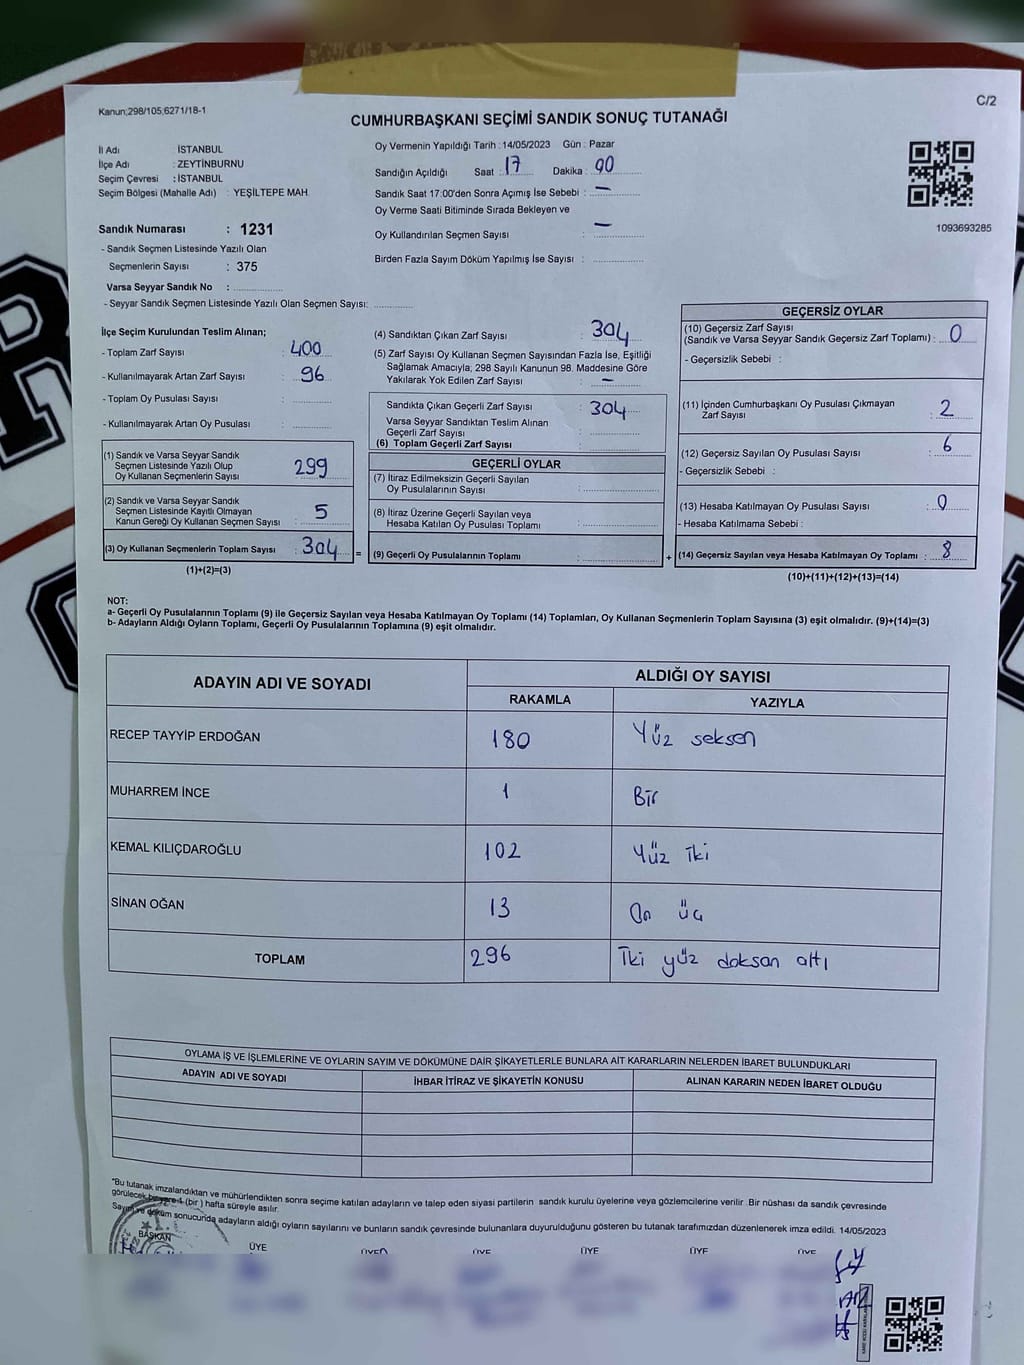 Kanun;298/105;6271/18-1
C/2
CUMHURBAŞKANI SEÇİMİ SANDIK SONUÇ TUTANAĞI
İl Adı : İSTANBUL
İlçe Adı : ZEYTİNBURNU
Seçim Çevresi : İSTANBUL
Seçim Bölgesi (Mahalle Adı) : YEŞİLTEPE MAH.
Oy Vermenin Yapıldığı Tarih : 14/05/2023 Gün : Pazar
Sandığın Açıldığı Saat : 17 Dakika : 00
Sandık Saat 17:00'den Sonra Açımış İse Sebebi : —
Oy Verme Saati Bitiminde Sırada Bekleyen ve
Oy Kullandırılan Seçmen Sayısı : —
Birden Fazla Sayım Döküm Yapılmış İse Sayısı :
1093693285
Sandık Numarası : 1231
- Sandık Seçmen Listesinde Yazılı Olan
Seçmenlerin Sayısı : 375
Varsa Seyyar Sandık No :
- Seyyar Sandık Seçmen Listesinde Yazılı Olan Seçmen Sayısı:
İlçe Seçim Kurulundan Teslim Alınan;
- Toplam Zarf Sayısı : 400
- Kullanılmayarak Artan Zarf Sayısı : 96
- Toplam Oy Pusulası Sayısı :
- Kullanılmayarak Artan Oy Pusulası :
(1) Sandık ve Varsa Seyyar Sandık
Seçmen Listesinde Yazılı Olup
Oy Kullanan Seçmenlerin Sayısı : 299
(2) Sandık ve Varsa Seyyar Sandık
Seçmen Listesinde Kayıtlı Olmayan
Kanun Gereği Oy Kullanan Seçmen Sayısı : 5
(3) Oy Kullanan Seçmenlerin Toplam Sayısı : 304 =
(1)+(2)=(3)
(4) Sandıktan Çıkan Zarf Sayısı : 304
(5) Zarf Sayısı Oy Kullanan Seçmen Sayısından Fazla İse, Eşitliği
Sağlamak Amacıyla; 298 Sayılı Kanunun 98. Maddesine Göre
Yakılarak Yok Edilen Zarf Sayısı : —
Sandıkta Çıkan Geçerli Zarf Sayısı : 304
Varsa Seyyar Sandıktan Teslim Alınan
Geçerli Zarf Sayısı :
(6) Toplam Geçerli Zarf Sayısı :
GEÇERLİ OYLAR
(7) İtiraz Edilmeksizin Geçerli Sayılan
Oy Pusulalarının Sayısı :
(8) İtiraz Üzerine Geçerli Sayılan veya
Hesaba Katılan Oy Pusulası Toplamı :
(9) Geçerli Oy Pusulalarının Toplamı : +
GEÇERSİZ OYLAR
(10) Geçersiz Zarf Sayısı
(Sandık ve Varsa Seyyar Sandık Geçersiz Zarf Toplamı) : 0
- Geçersizlik Sebebi :
(11) İçinden Cumhurbaşkanı Oy Pusulası Çıkmayan
Zarf Sayısı : 2
(12) Geçersiz Sayılan Oy Pusulası Sayısı : 6
- Geçersizlik Sebebi :
(13) Hesaba Katılmayan Oy Pusulası Sayısı : 0
- Hesaba Katılmama Sebebi :
(14) Geçersiz Sayılan veya Hesaba Katılmayan Oy Toplamı : 8
(10)+(11)+(12)+(13)=(14)
NOT:
a- Geçerli Oy Pusulalarının Toplamı (9) ile Geçersiz Sayılan veya Hesaba Katılmayan Oy Toplamı (14) Toplamları, Oy Kullanan Seçmenlerin Toplam Sayısına (3) eşit olmalıdır. (9)+(14)=(3)
b- Adayların Aldığı Oyların Toplamı, Geçerli Oy Pusulalarının Toplamına (9) eşit olmalıdır.
ADAYIN ADI VE SOYADI
ALDIĞI OY SAYISI
RAKAMLA YAZIYLA
RECEP TAYYİP ERDOĞAN 180 Yüz seksen
MUHARREM İNCE 1 Bir
KEMAL KILIÇDAROĞLU 102 Yüz iki
SİNAN OĞAN 13 On üç
TOPLAM 296 İki yüz doksan altı
OYLAMA İŞ VE İŞLEMLERİNE VE OYLARIN SAYIM VE DÖKÜMÜNE DAİR ŞİKAYETLERLE BUNLARA AİT KARARLARIN NELERDEN İBARET BULUNDUKLARI
ADAYIN ADI VE SOYADI İHBAR İTİRAZ VE ŞİKAYETİN KONUSU ALINAN KARARIN NEDEN İBARET OLDUĞU
"Bu tutanak imzalandıktan ve mühürlendikten sonra seçime katılan adayların ve talep eden siyasi partilerin sandık kurulu üyelerine veya gözlemcilerine verilir. Bir nüshası da sandık çevresinde
görülecek bir yere 1 (bir ) hafta süreyle asılır.
Sayım ve döküm sonucunda adayların aldığı oyların sayılarını ve bunların sandık çevresinde bulunanlara duyurulduğunu gösteren bu tutanak tarafımızdan düzenlenerek imza edildi. 14/05/2023
BAŞKAN ÜYE ÜYE ÜYE ÜYE ÜYE ÜYE